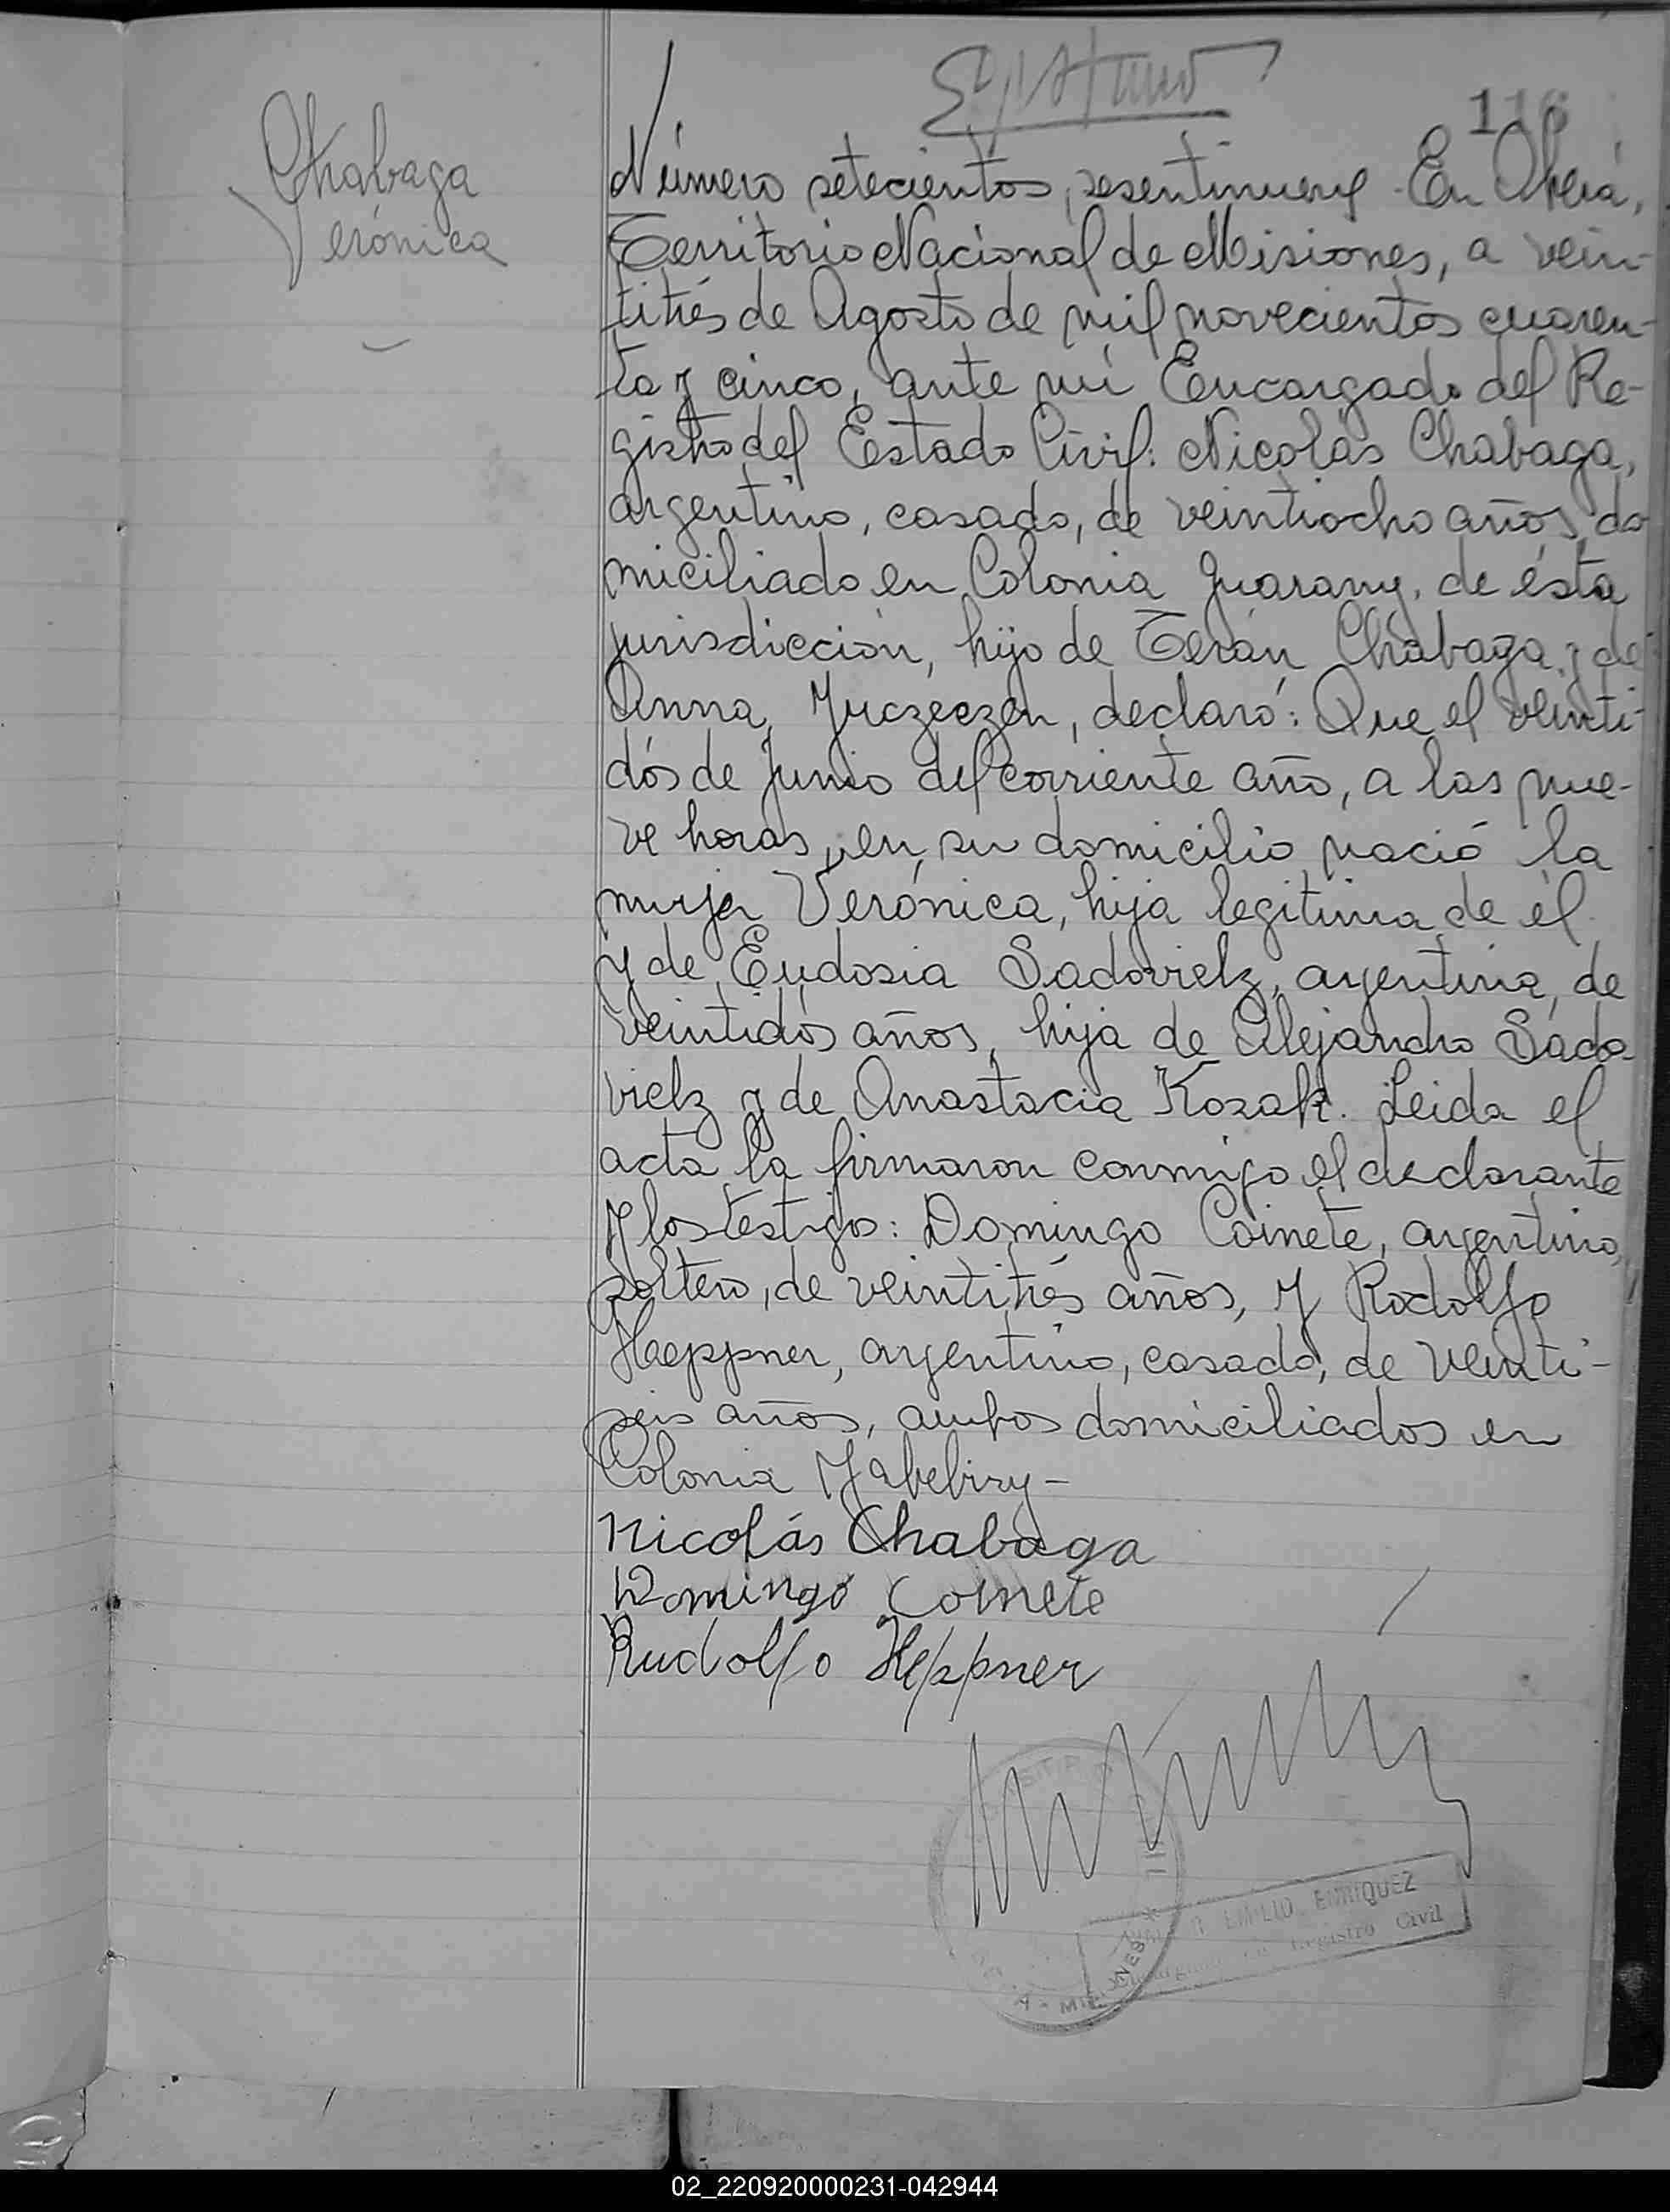 116
Chabaga
Verónica
Número setecientos sesentinueve - En Oberá,
Territorio Nacional de Misiones, a vein-
titrés de Agosto de mil novecientos cuaren-
ta y cinco, ante mi Encargado del Re-
gistro del Estado Civil: Nicolás Chabaga,
argentino, casado, de veintiocho años, do
miciliado en Colonia Guarany, de ésta
jurisdicción, hijo de Terán Chabaga y de
Anna Juczeczen, declaró: Que el veinti-
dós de Junio del corriente año, a las nue-
ve horas, en su domicilio nació la
mujer Verónica, hija legitima de él
y de Eudosia Sadovielz, argentina, de
veintidós años, hija de Alejandro Sado-
vielz y de Anastacia Kozak. Leida el
acta la firmaron conmigo el declarante
y los testigos: Domingo Coinete, argentino,
soltero, de veintitrés años, y Rodolfo
Haeppner, argentino, casado, de veinti-
seis años, ambos domiciliados en
Colonia Yabebiry -
Nicolás Chabaga
Domingo Coinete
Rudolfo Heppner
EMILIO ENRIQUEZ
Registro Civil
MISIONES
02_220920000231-042944